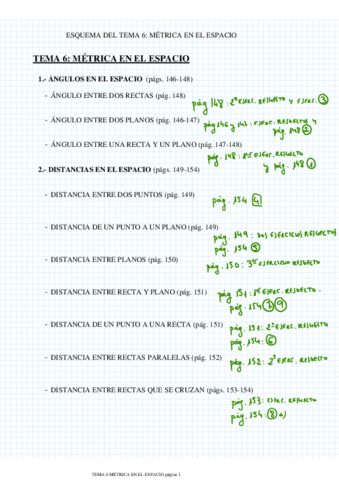 ESQUEMA DEL TEMA 6: MÉTRICA EN EL ESPACIO
TEMA 6: MÉTRICA EN EL ESPACIO
1.- ÁNGULOS EN EL ESPACIO (págs. 146-148)
- ÁNGULO ENTRE DOS RECTAS (pág. 148)
pág 148: 2º EJERC. RESUELTO Y EJERC. 3
- ÁNGULO ENTRE DOS PLANOS (pág. 146-147)
pág 146 y 147: EJERC. RESUELTOS y
pág. 148 2
- ÁNGULO ENTRE UNA RECTA Y UN PLANO (pág. 147-148)
pág. 148: 1º EJERC. RESUELTO
y pág. 148 1
2.- DISTANCIAS EN EL ESPACIO (págs. 149-154)
- DISTANCIA ENTRE DOS PUNTOS (pág. 149)
pág. 154 4
- DISTANCIA DE UN PUNTO A UN PLANO (pág. 149)
pág. 149: DOS EJERCICIOS RESUELTOS
pág. 154 5
- DISTANCIA ENTRE PLANOS (pág. 150)
pág. 150: 3er EJERCICIO RESUELTO
- DISTANCIA ENTRE RECTA Y PLANO (pág. 151)
pág 151: 1º EJERC. RESUELTO.
pág. 154 7 9
- DISTANCIA DE UN PUNTO A UNA RECTA (pág. 151)
pág. 151: 2º EJERC. RESUELTO
pág. 154: 6
- DISTANCIA ENTRE RECTAS PARALELAS (pág. 152)
pág. 152: 2º EJERC. RESUELTO
- DISTANCIA ENTRE RECTAS QUE SE CRUZAN (págs. 153-154)
pág. 153: EJERC. RESUELTO
pág. 154: 8 a)
TEMA 6 MÉTRICA EN EL ESPACIO página 1